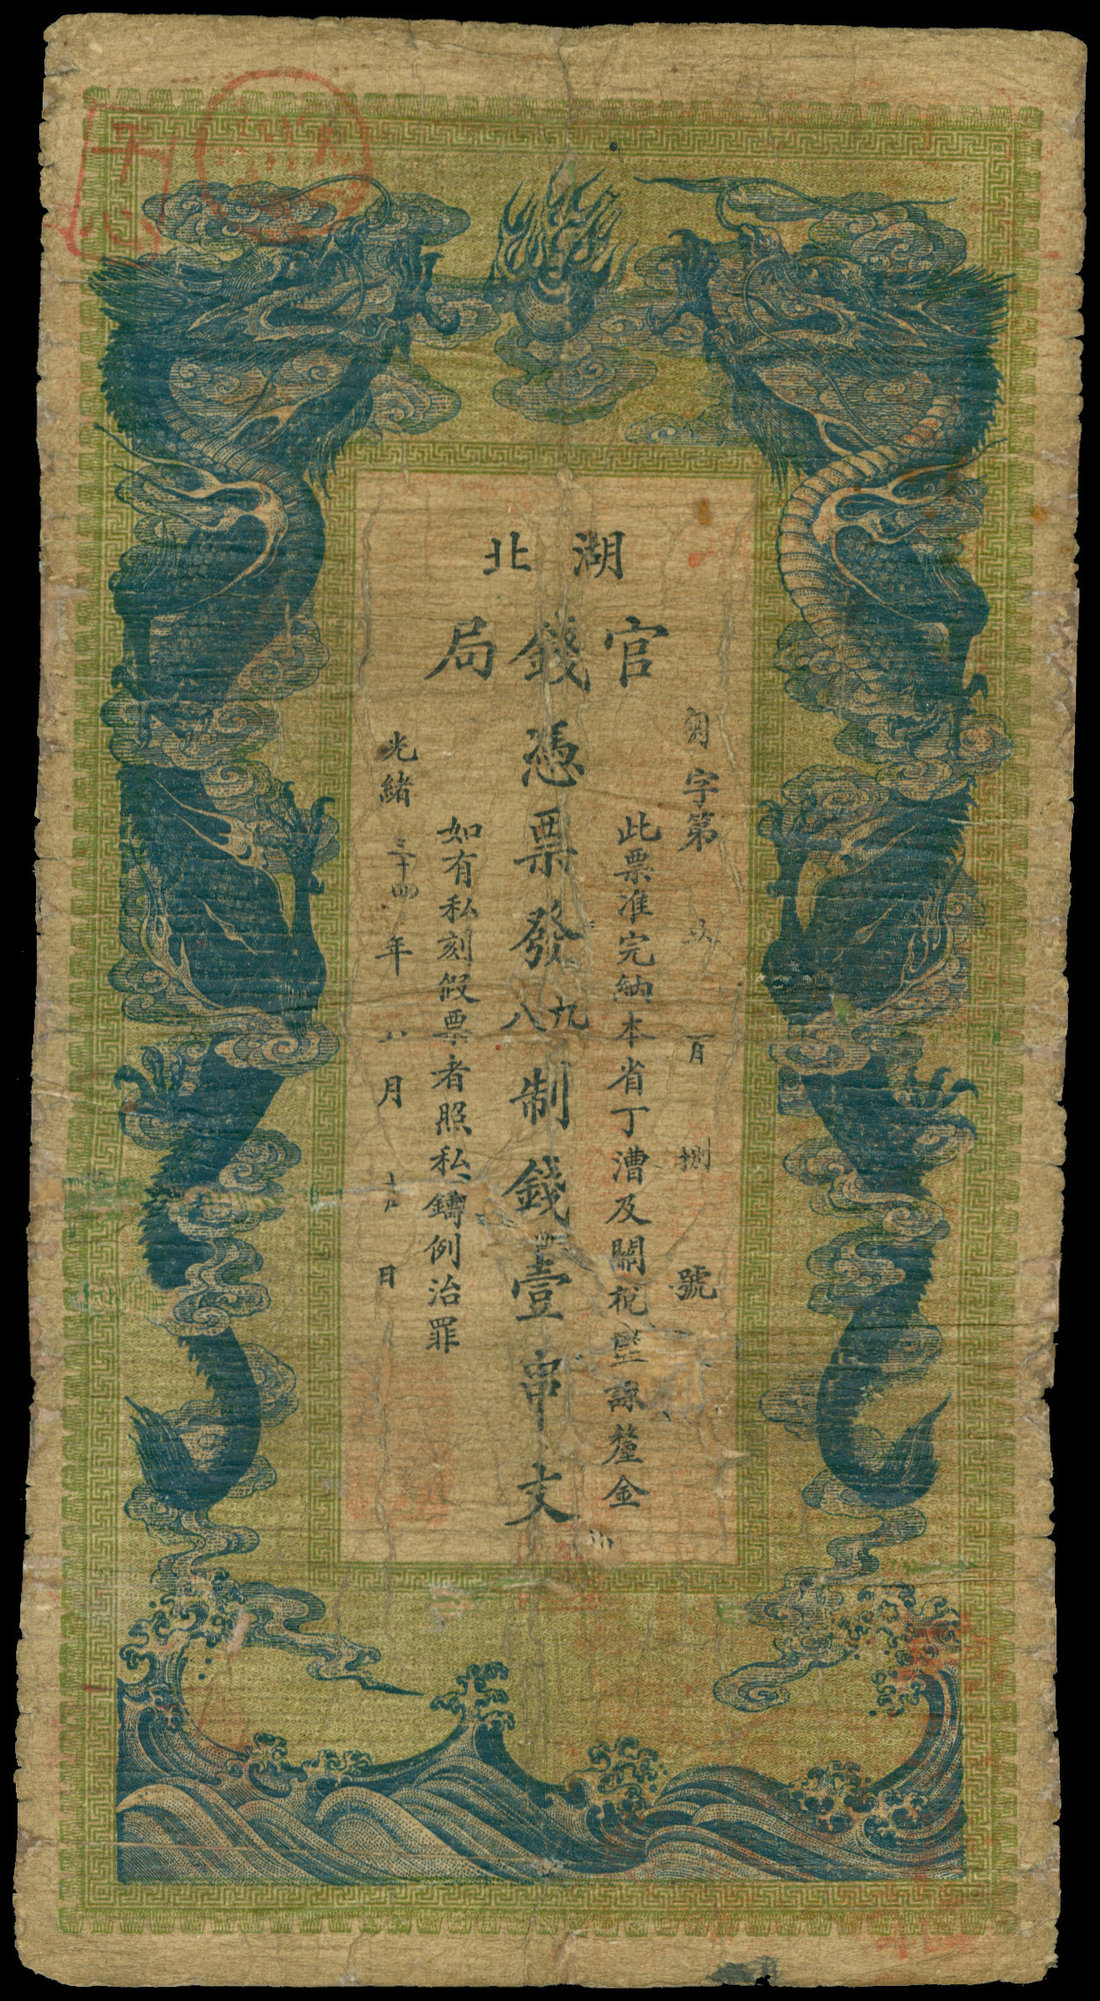 湖北
官錢局
字第 百 捌 號
此票准完納本省丁漕及關稅鹽課釐金
憑票發九八制錢壹串文
如有私刻假票者照私鑄例治罪
光緒三十四年八月 日